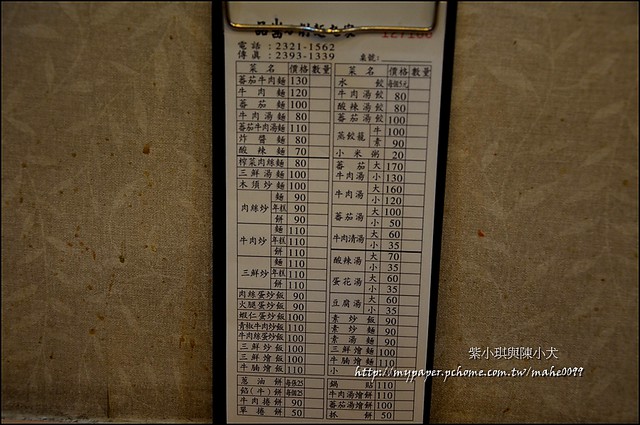 電話：2321-1562
傳真：2393-1339
桌號:
菜名 價格 數量
蕃茄牛肉麵 130
牛肉麵 120
蕃茄麵 100
牛肉湯麵 80
蕃茄牛肉湯麵 110
炸醬麵 80
酸辣麵 70
榨菜肉絲麵 80
三鮮湯麵 100
木須炒麵 100
肉絲炒 麵 90
年糕 90
餅 90
牛肉炒 麵 110
年糕 110
餅 110
三鮮炒 麵 110
年糕 110
餅 110
肉絲蛋炒飯 90
火腿蛋炒飯 90
蝦仁蛋炒飯 100
青椒牛肉炒飯 110
牛肉絲蛋炒飯 100
三鮮炒飯 100
三鮮燴飯 100
牛腩燴飯 110
蔥油餅 每張25
餡(牛)餅 每個25
牛肉捲餅 90
單捲餅 50
菜名 價格 數量
水餃 每個5元
牛肉湯餃 80
酸辣湯餃 80
蕃茄湯餃 100
蒸餃籠 牛 100
素 90
小米粥 20
蕃茄牛肉湯 大 170
小 130
牛肉湯 大 160
小 120
蕃茄湯 大 100
小 50
牛肉清湯 大 60
小 35
酸辣湯 大 70
小 35
蛋花湯 大 60
小 35
豆腐湯 大 60
小 35
素炒飯 90
素炒麵 90
素湯麵 90
三鮮燴麵 100
牛腩燴麵 110
小
鍋貼 110
牛肉湯燴餅 110
蕃茄湯燴餅 100
抓餅 50
紫小琪與陳小犬
http://mypaper.pchome.com.tw/mahe0099